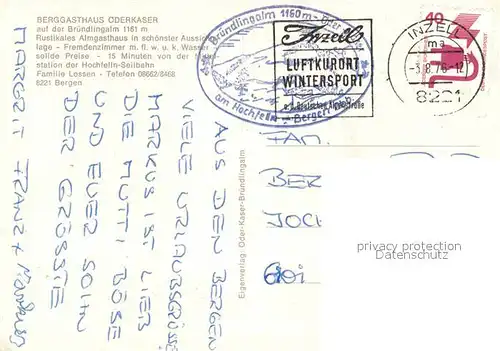 BERGGASTHAUS ODERKASER
auf der Bründlingalm 1161 m
Rustikales Almgasthaus in schönster Aussichts-
lage - Fremdenzimmer m. fl. w. u. k. Wasser
solide Preise - 15 Minuten von der
station der Hochfelln-Seilbahn
Familie Lossen - Telefon 08662/8468
8221 Bergen
Bründlingalm 1160 m - Oder
am Hochfelln - Bergen
Inzell
LUFTKURORT
WINTERSPORT
a. d. Deutschen Alpenstraße
INZELL
ma
-3.8.76-12
8221
40
AUS DEN BERGEN
VIELE URLAUBSGRÜSSE
MARKUS IST LIEB
DIE MUTTI BÖSE
UND EUER SOHN
DER GRÖSSTE
MARGRIT FRANZ + Markus
Eigenverlag: Oder-Kaser-Bründlingalm
FAM.
BER
JOCH
privacy protection
VEREINSMARKEN.DE